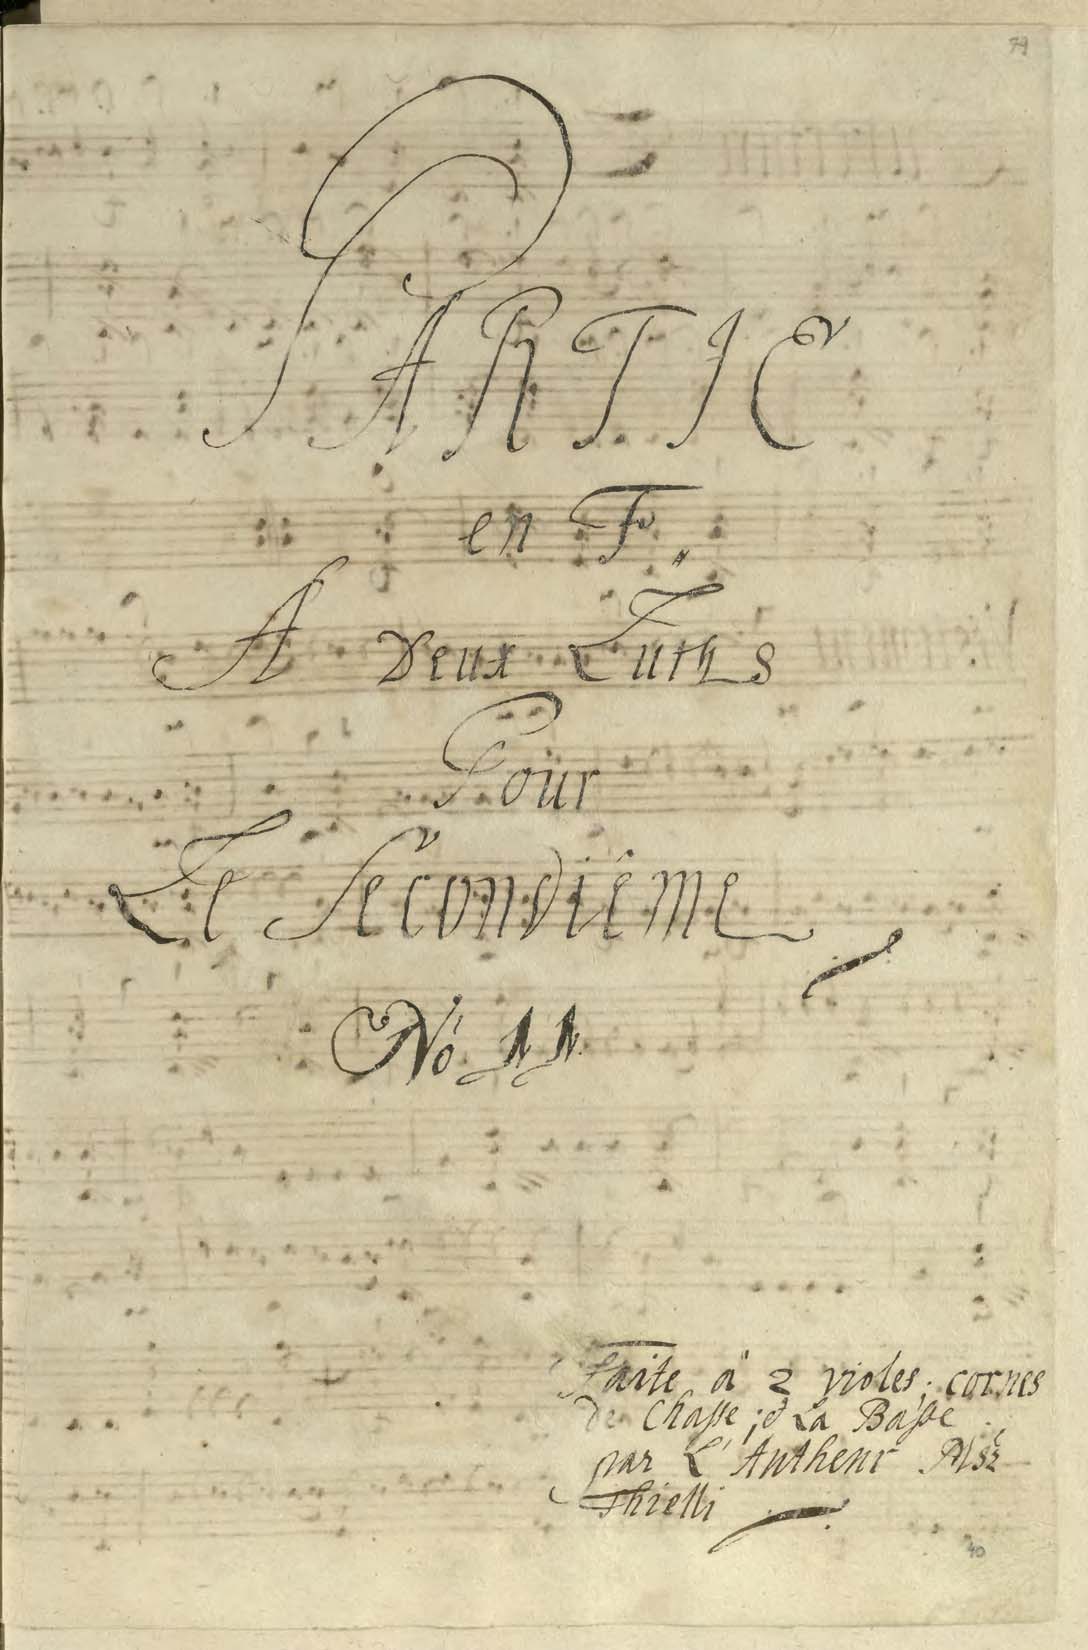 79
PARTIE
en F.
A Deux Luths
Pour
Le Secondiéme
No 11.
Faite a 2 violes; cornes
de Chasse; et La Basse
par L'Autheur Msr
Thielli
40